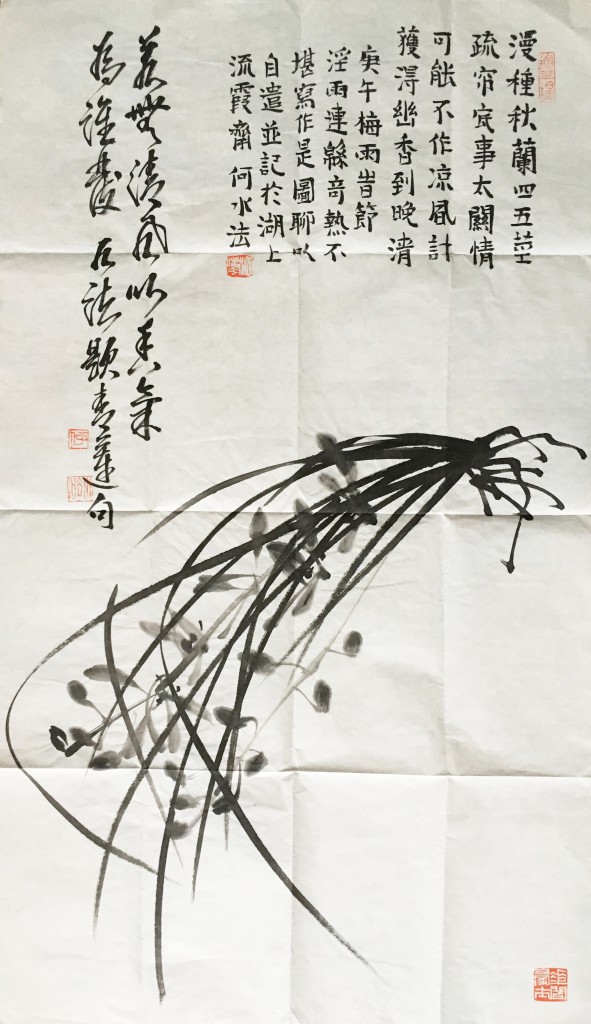 漫種秋蘭四五莖
疏帘底事太關情
可能不作凉風計
護得幽香到晚清
庚午梅雨旹節
淫雨連緜奇熱不
堪寫作是圖聊以
自遣並記於湖上
流霞齋何水法
若無清風吹香氣
為誰發水法題青蓮句